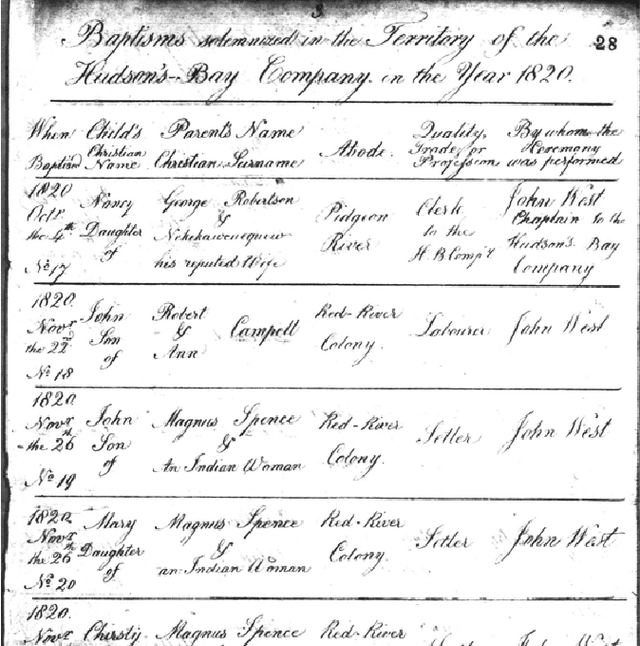 3
Baptisms solemnized in the Territory of the 28
Hudson's-Bay Company in the Year 1820.
When Baptised
Child's Christian Name
Parents Name
Christian Surname
Abode.
Quality, Trade or Profession
By whom the Ceremony was performed
1820
Octr
the 4th
No 17
Nancy
Daughter
of
George Robertson
&
his reputed Wife
Pidgeon
River
Clerk
to the
H. B Compy
John West
Chaplain to the
Hudson's Bay
Company
1820.
Novr
the 22d
No 18
John
Son
of
Robert
& Campell
Ann
Red-River
Colony.
Labourer
John West
1820
Novr
the 26th
No 19
John
Son
of
Magnus Spence
&
An Indian Woman
Red-River
Colony.
Setler
John West
1820
Novr
the 26th
No 20
Mary
Daughter
of
Magnus Spence
&
an Indian Woman
Red-River
Colony.
Setler
John West
1820.
Novr
Chirsty
Magnus Spence
Red-River